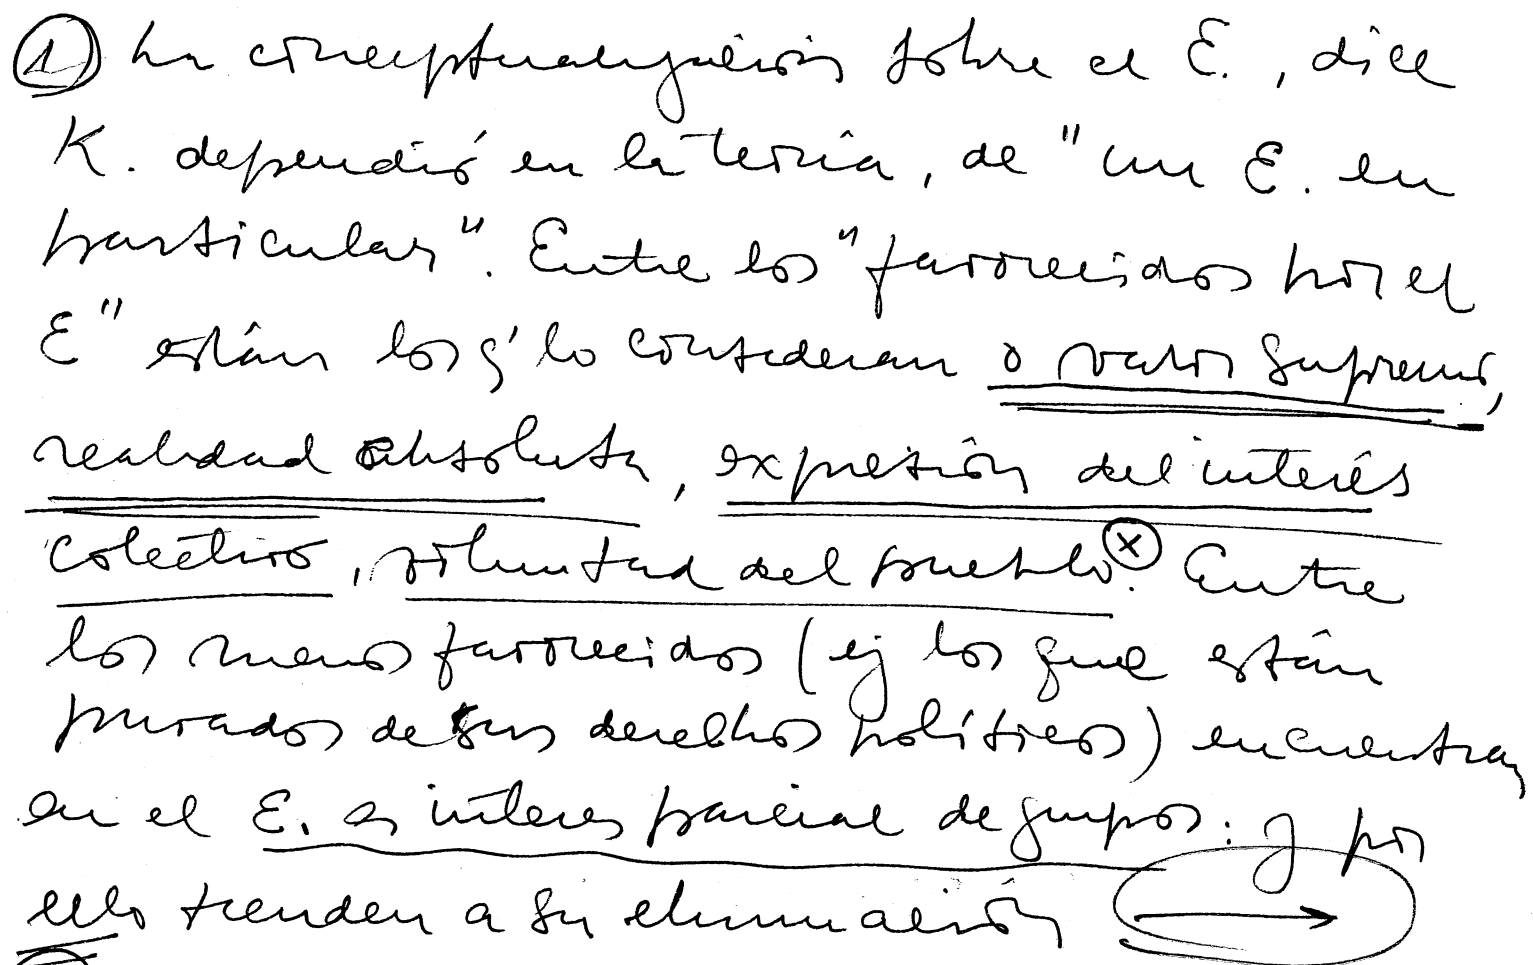 ① La conceptualización sobre el E., dice
K. dependió en la teoría, de "un E. en
particular". Entre los "favorecidos por el
E" están los q' lo consideran o valor supremo,
realidad absoluta, expresión del interés
colectivo, voluntad del pueblo ⓧ. Entre
los menos favorecidos (ej los que están
privados de sus derechos políticos) encuentran
en el E. es interes parcial de grupos: y por
ello tienden a su eliminación →